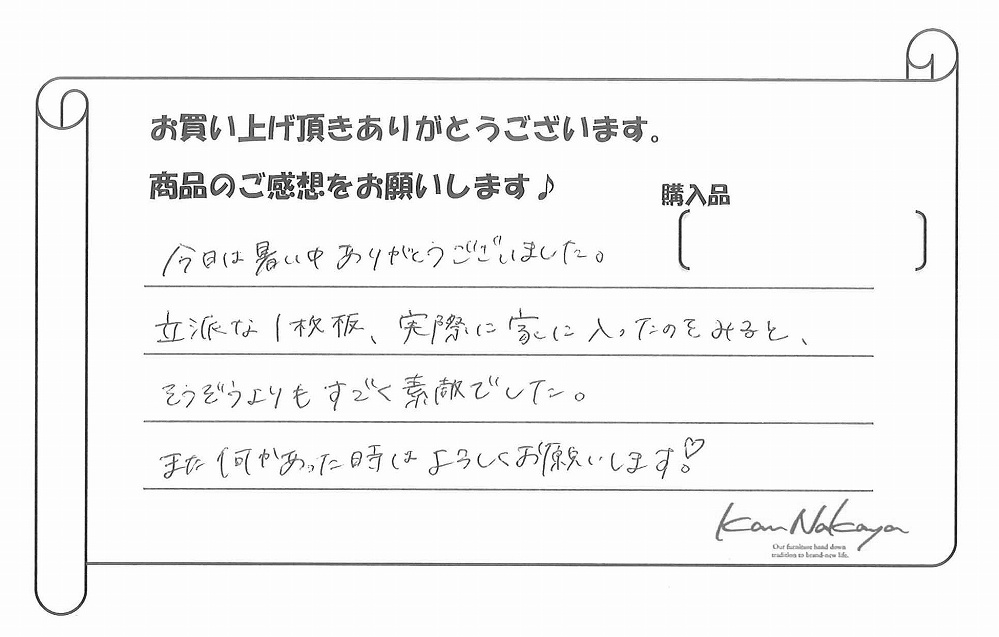 お買い上げ頂きありがとうございます。
商品のご感想をお願いします♪
購入品
今日は暑い中ありがとうございました。
立派な1枚板、実際に家に入ったのをみると、
そうぞうよりもすごく素敵でした。
また何かあった時はよろしくお願いします♡
Kan Nakaya
Our furniture hand down
tradition to brand-new life.